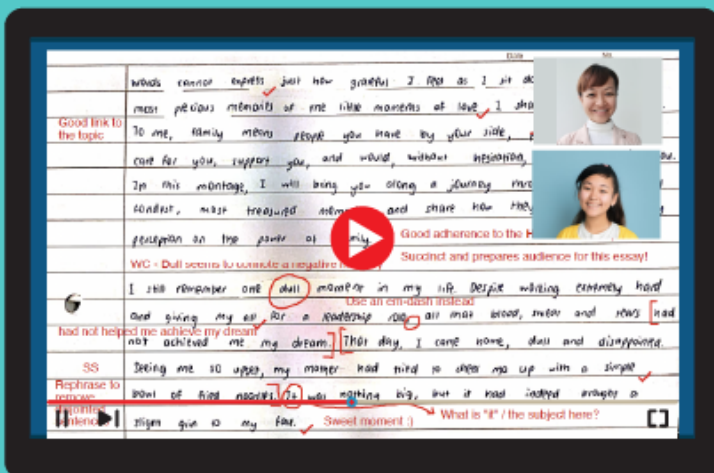 words cannot express just how grateful I feel as I sit do
most precious memories of the little moments of love, I sha
Good link to
the topic
To me, family means people you have by your side,
care for you, support you, and would, without hesitation,
In this montage, I will bring you along a journey
fondest, most treasured mem and share how they
perception on the power of mily.
Good adherence to the
WC - Dull seems to connote a negative
Succinct and prepares audience for this essay!
I still remember one dull moment in my life. Despite working extremely hard
Use an em-dash instead
and giving my all for a leadership role, all that blood, sweat and tears [had
had not helped me achieve my dream
not achieved me my dream.] [That day, I came home, dull and disappointed.
SS
Seeing me so upset, my mother had tried to cheer me up with a simple
Rephrase to
remove
disjointed
sentences
bowl of fried noodles.] It was nothing big, but it had indeed brought a
What is "it" / the subject here?
slight grin to my face.
Sweet moment :)